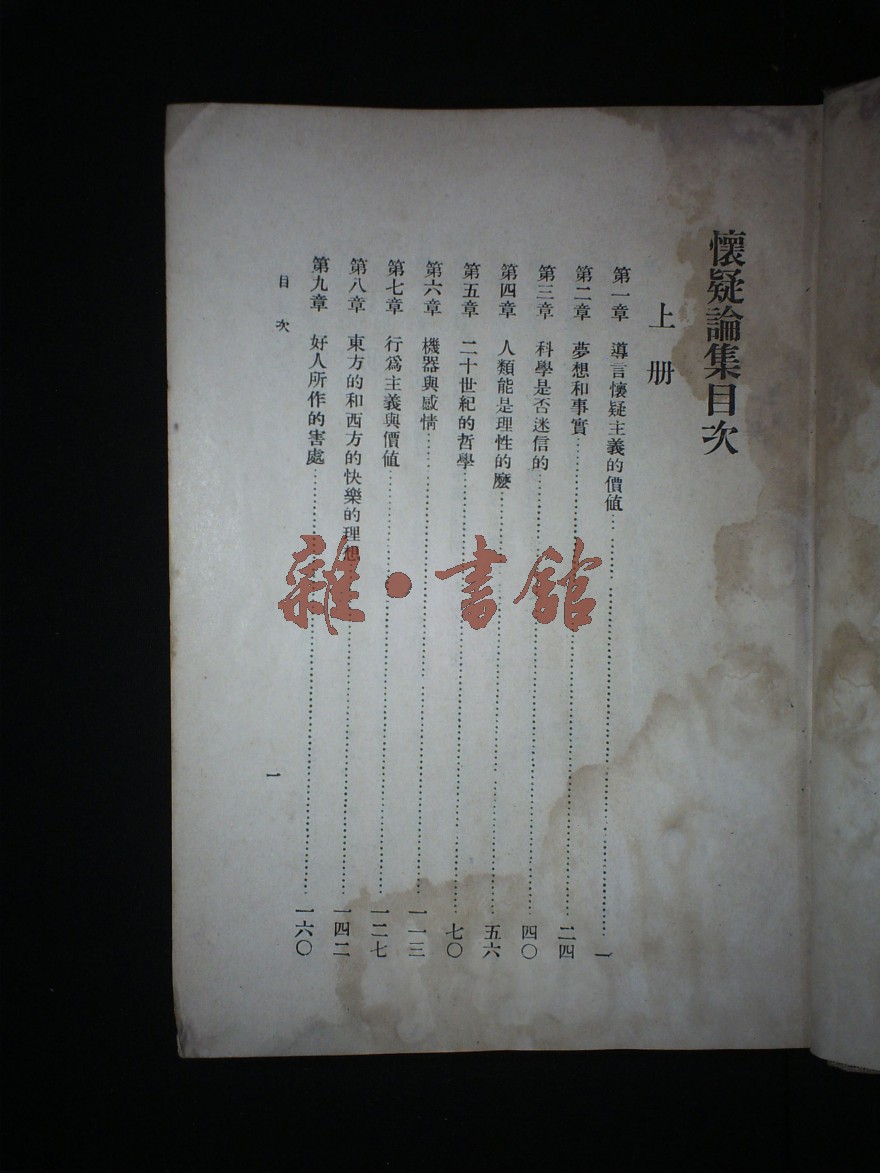 懷疑論集目次
上册
第一章 導言懷疑主義的價值……一
第二章 夢想和事實……二四
第三章 科學是否迷信的……四〇
第四章 人類能是理性的麽……五六
第五章 二十世紀的哲學……七〇
第六章 機器與感情……一一三
第七章 行爲主義與價値……一二七
第八章 東方的和西方的快樂的理想……一四二
第九章 好人所作的害處……一六〇
目次
一
雜·書館